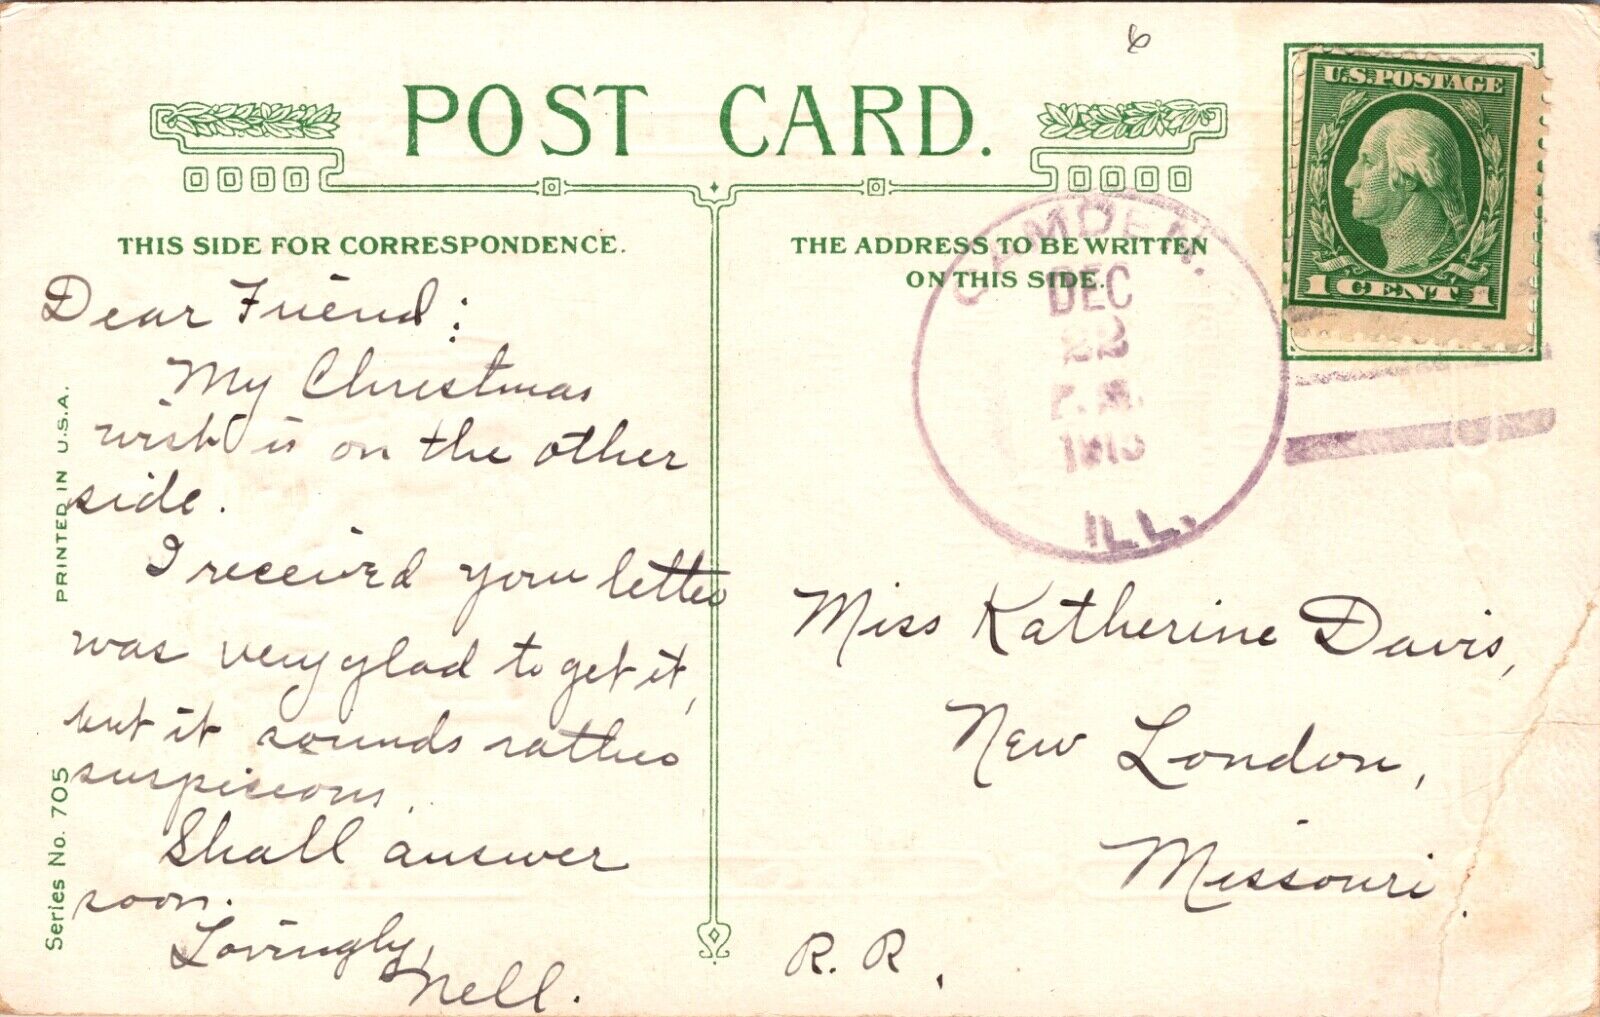 6
POST CARD.
U.S. POSTAGE
1 CENT 1
THIS SIDE FOR CORRESPONDENCE.
THE ADDRESS TO BE WRITTEN
ON THIS SIDE.
CAMDEN.
DEC
22
P.M.
ILL.
Dear Friend:
My Christmas
wish is on the other
side.
I received your letter
was very glad to get it,
but it sounds rather
suspiscious.
Shall answer
soon.
Lovingly,
Nell.
Miss Katherine Davis,
New London,
Missouri.
R. R.
PRINTED IN U.S.A.
Series No. 705